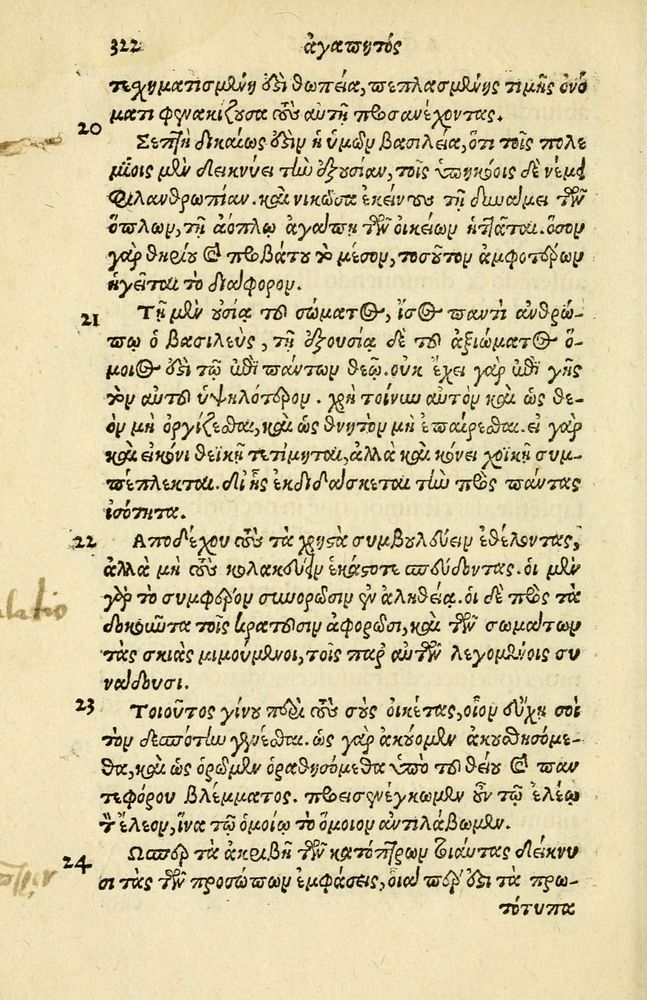 322 ἀγαπητός
τεχηματισμένη ὅτι θωπεία, πεπλασμένης τιμῆς ὀνό
ματι φενακίζουσα τοὺς αὐτῇ προσανέχοντας.
20
Σεπτὴ δικαίως ἐστὶν ἡ ὑμῶν βασιλεία, ὅτι τοῖς πολε
μίοις μὲν δεικνύει τὴν ἐξουσίαν, τοῖς ὑπηκόοις δὲ νέμει
Φιλανθρωπίαν. καὶ νικῶσα ἐκείνους τῇ δυνάμει τῶν
ὅπλων, τῇ ἀόπλῳ ἀγάπῃ τῶν οἰκείων ἡττᾶται. ὅσον
γὰρ θηρίου καὶ προβάτου τὸ μέσον, τοσοῦτον ἀμφοτέρων
ἡγεῖται τὸ διάφορον.
21
Τῇ μὲν οὐσίᾳ τοῦ σώματος, ἴσος παντὶ ἀνθρώ-
πῳ ὁ βασιλεὺς, τῇ ἐξουσίᾳ δὲ τοῦ ἀξιώματος ὅ-
μοιός ἐστι τῷ ἐπὶ πάντων θεῷ. οὐκ ἔχει γὰρ ἐπὶ γῆς
τὸν αὐτοῦ ὑψηλότερον. χρὴ τοίνυν αὐτὸν καὶ ὡς θε-
ὸν μὴ ὀργίζεσθαι, καὶ ὡς θνητὸν μὴ ἐπαίρεσθαι. εἰ γὰρ
καὶ εἰκόνι θεϊκῇ τετίμηται, ἀλλὰ καὶ κόνει χοϊκῇ συμ-
πέπλεκται. δι' ἧς ἐκδιδάσκεται τὴν πρὸς πάντας
ἰσότητα.
22
Ἀποδέχου τοὺς τὰ χρηστὰ συμβουλεύειν ἐθέλοντας,
ἀλλὰ μὴ τοὺς κολακεύειν ἑκάστοτε σπεύδοντας. οἱ μὲν
γὰρ τὸ συμφέρον συνορῶσιν ἐν ἀληθείᾳ. οἱ δὲ πρὸς τὰ
δοκοῦντα τοῖς κρατοῦσιν ἀφορῶσι, καὶ τῶν σωμάτων
τὰς σκιὰς μιμούμενοι, τοῖς παρ' αὐτῶν λεγομένοις συ
ναίδουσι.
23
Τοιοῦτος γίνου περὶ τοὺς σοὺς οἰκέτας, οἷον εὔχῃ σοὶ
τὸν δεσπότην γενέσθαι. ὡς γὰρ ἀκούομεν ἀκουθησόμε-
θα, καὶ ὡς ὁρῶμεν ὁραθησόμεθα ὑπὸ τοῦ θείου καὶ παν
τεφόρου βλέμματος. προεισενέγκωμεν οὖν τῷ ἐλέῳ
τὸν ἔλεον, ἵνα τῷ ὁμοίῳ τὸ ὅμοιον ἀντιλάβωμεν.
24
Ὥσπερ τὰ ἀκριβῆ τῶν κατόπτρων τοιαύτας δείκνυ
σι τὰς τῶν προσώπων ἐμφάσεις, οἷάπερ ἐστὶ τὰ πρω-
τότυπα